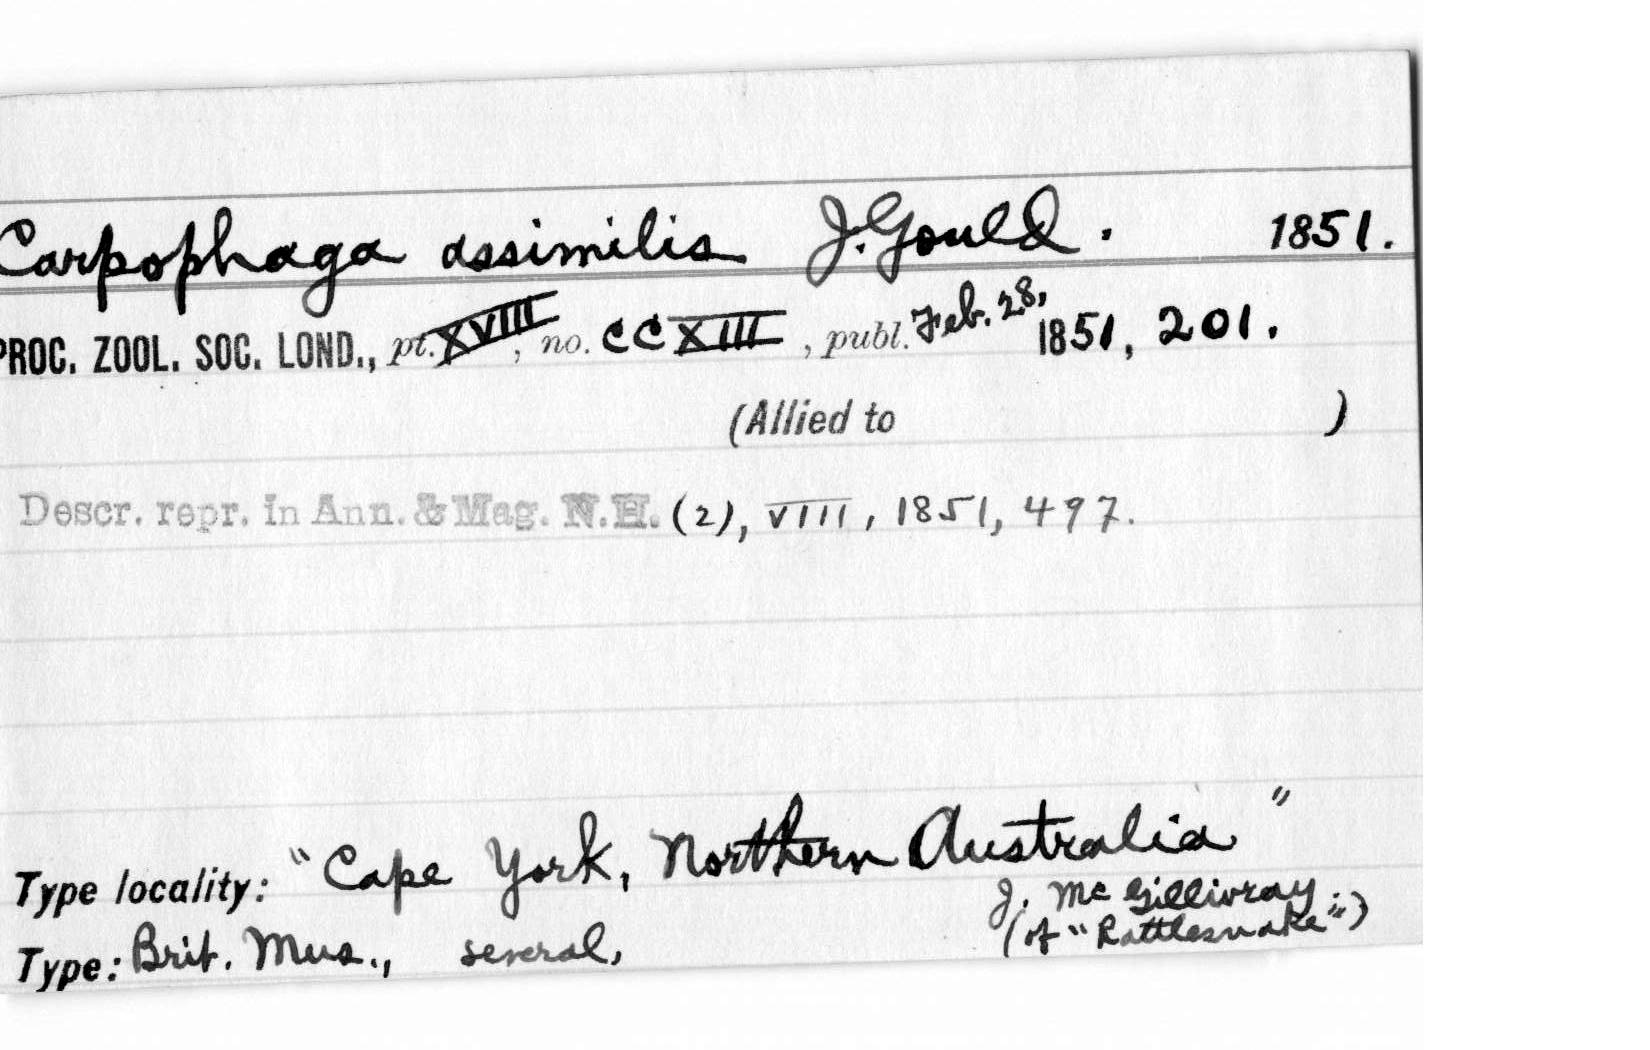 Carpophaga assimilis J. Gould. 1851.
PROC. ZOOL. SOC. LOND., pt. XVIII, no. CCXIII, publ. Feb. 28, 1851, 201.
(Allied to )
Descr. repr. in Ann. & Mag. N.H. (2), VIII, 1851, 497.
Type locality: "Cape York, Northern Australia"
J. McGillivray
Type: Brit. Mus., several, (of "Rattlesnake";)